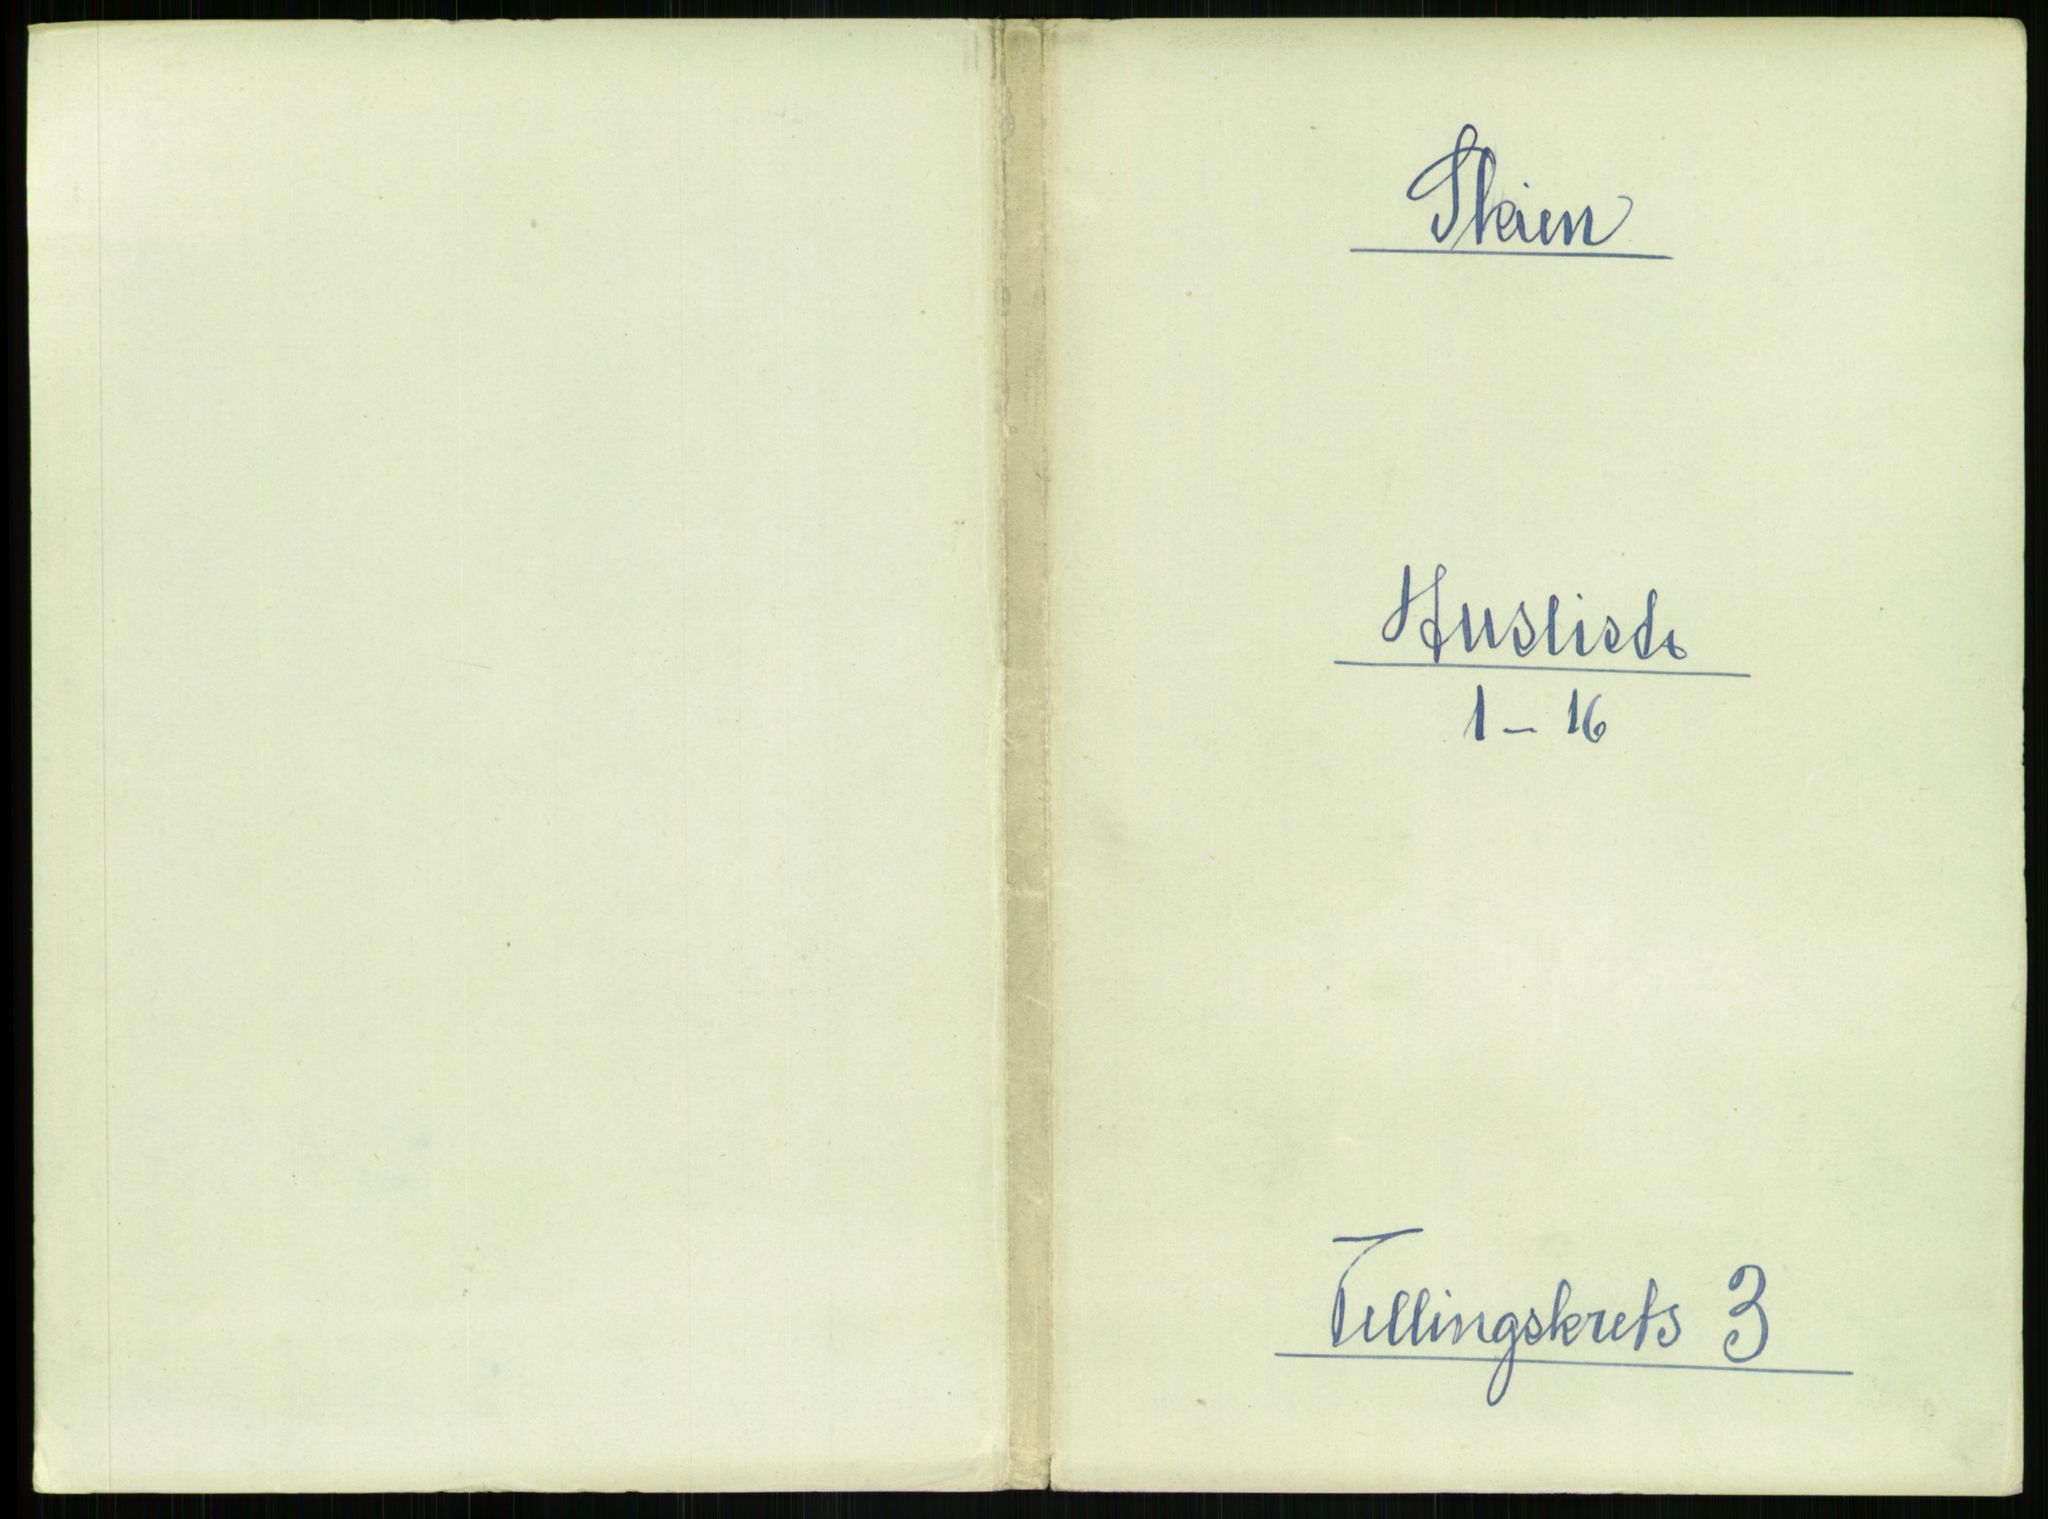 Skien
Husliste
1 - 16
Tellingskrets 3